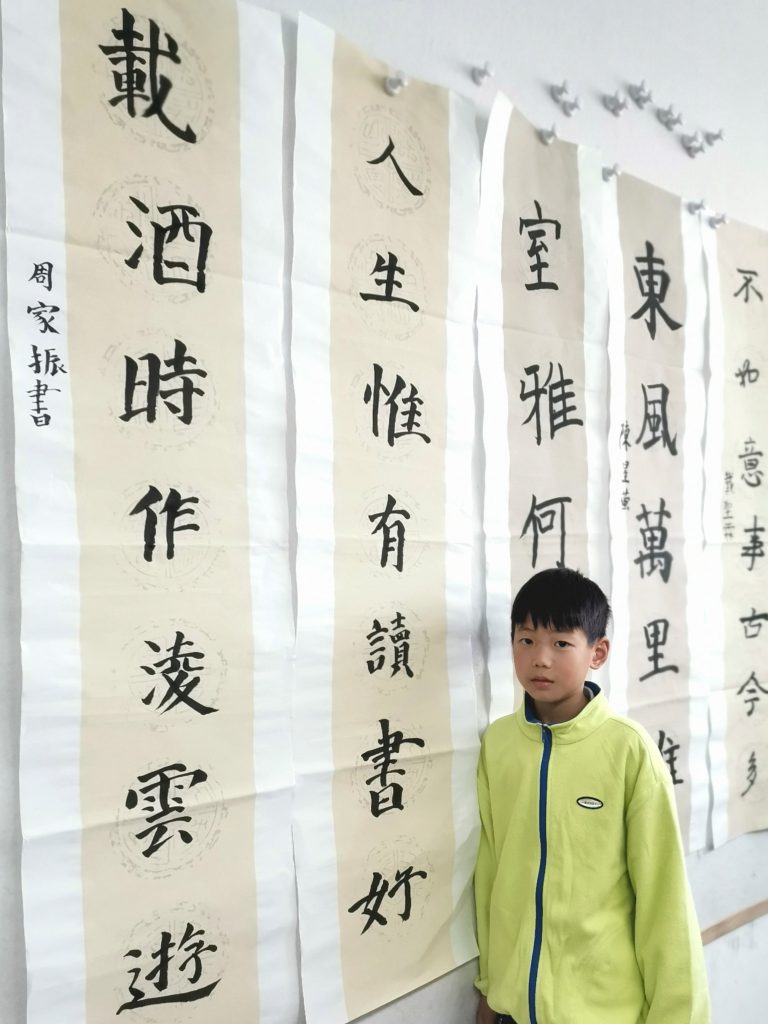 不如意事古今多
東風萬里
陳星東
室雅何
人生惟有讀書好
載酒時作淩雲遊
周家振書